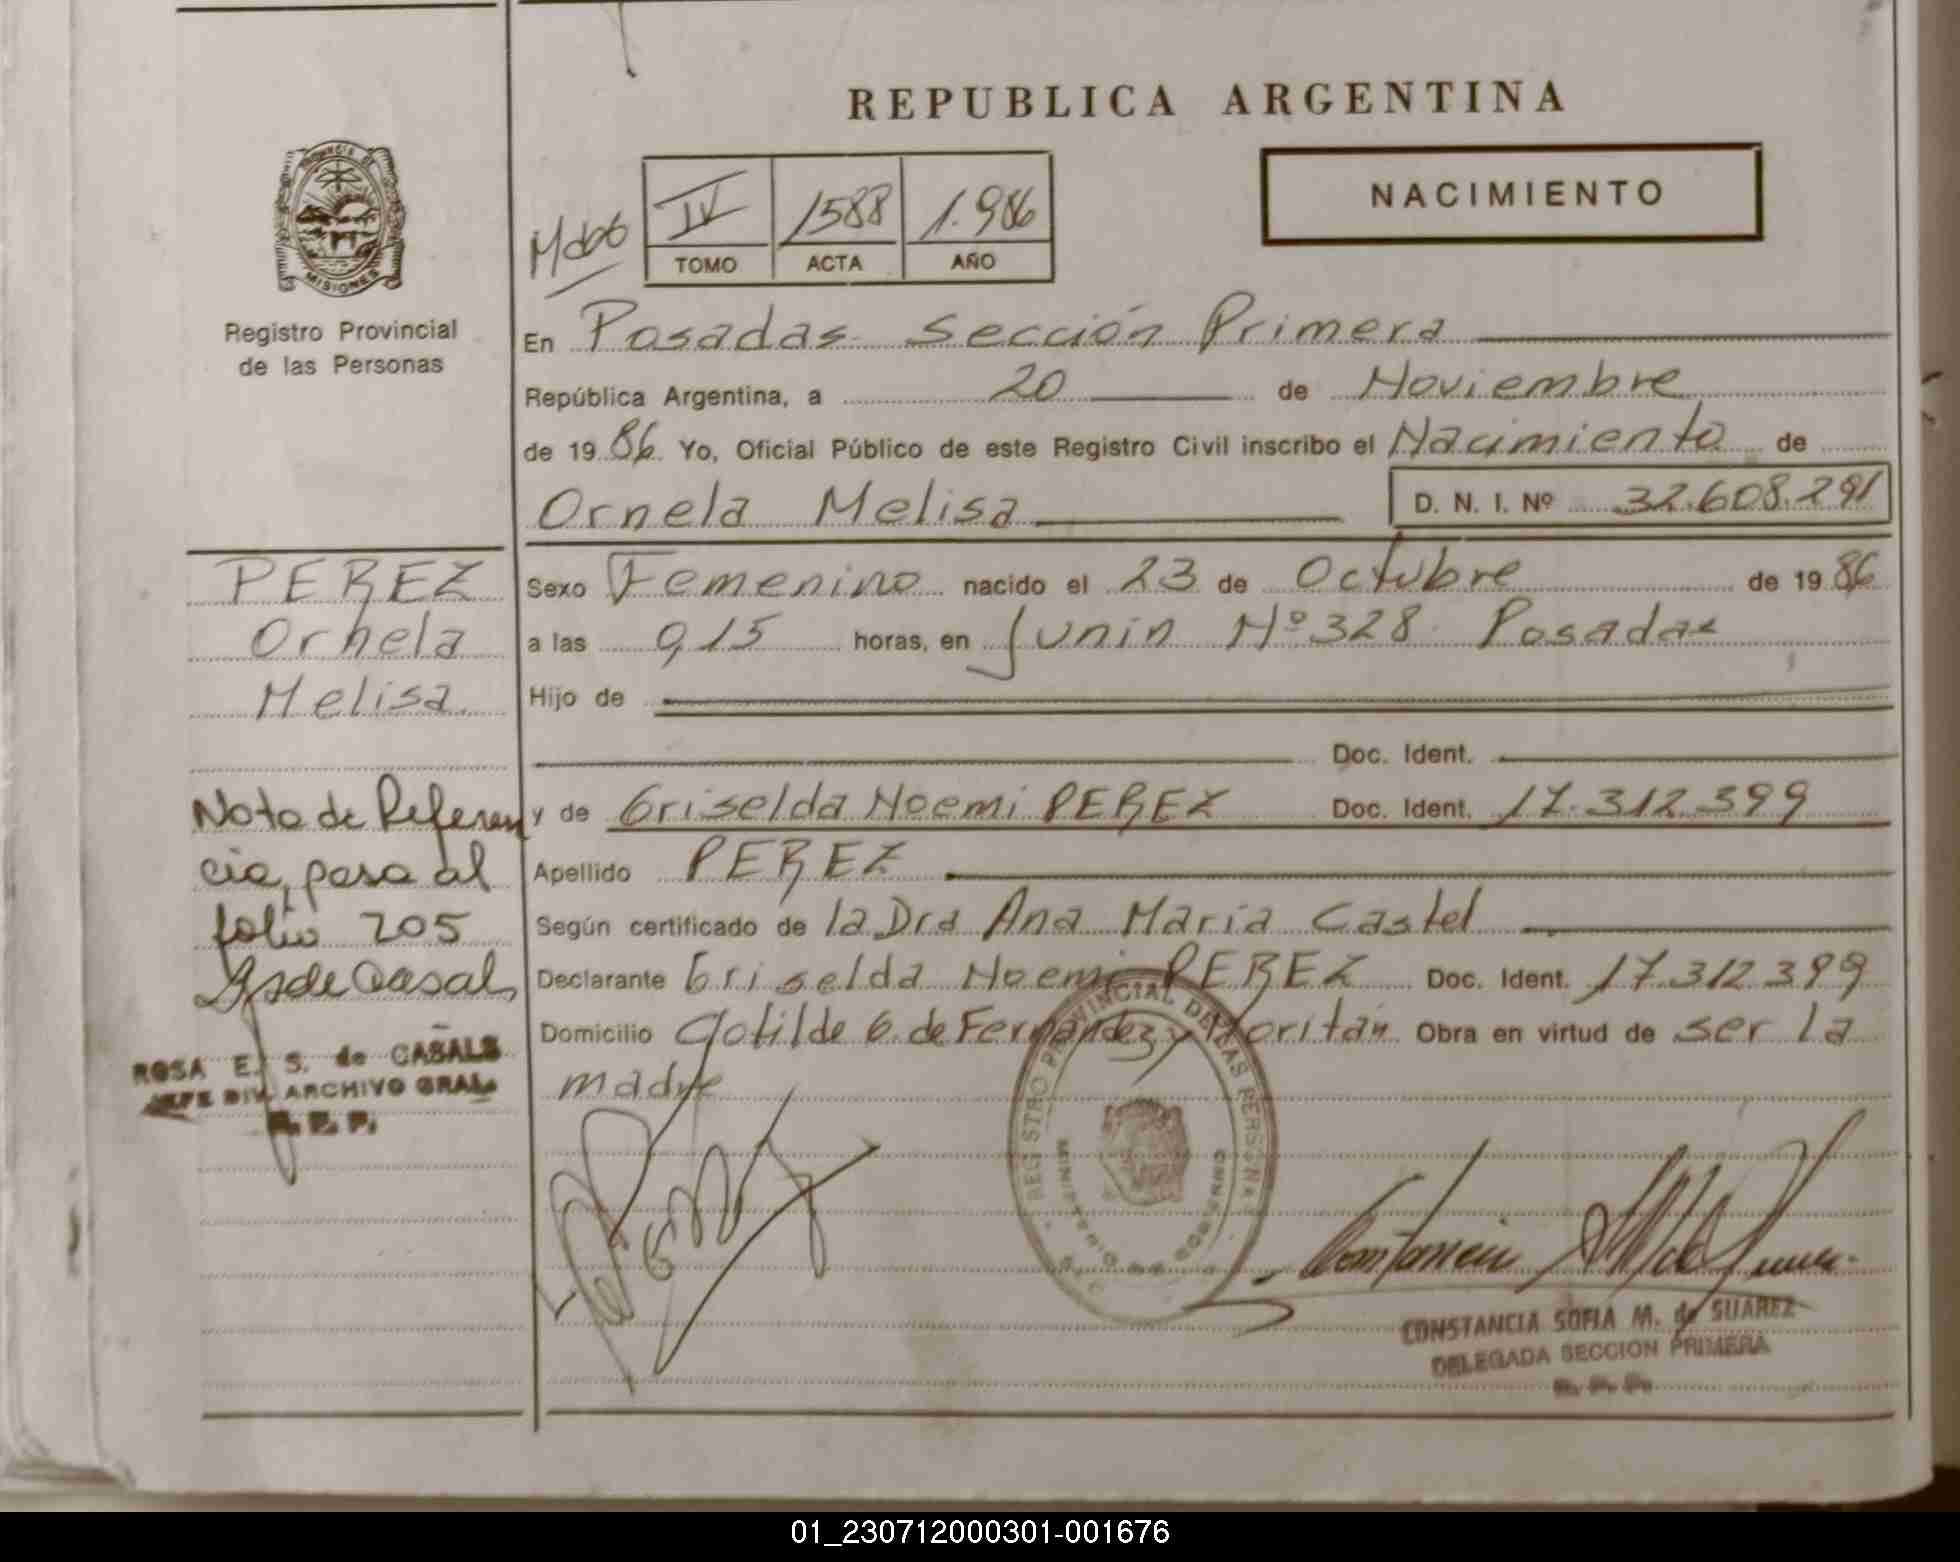 REPUBLICA ARGENTINA
NACIMIENTO
PROVINCIA DE
MISIONES
Registro Provincial
de las Personas
IV 1588 1.986
TOMO ACTA AÑO
En Posadas Sección Primera
República Argentina, a 20 de Noviembre
de 1986 Yo, Oficial Público de este Registro Civil inscribo el Nacimiento de
Ornela Melisa D. N. I. Nº 32.608.291
PEREZ
Ornela
Melisa
Sexo Femenino nacido el 23 de Octubre de 1986
a las 9,15 horas, en Junin Nº 328 Posadas
Hijo de
Doc. Ident.
y de Griselda Noemi PEREZ Doc. Ident. 17.312.399
Apellido PEREZ
Según certificado de la Dra Ana Maria Castel
Declarante Griselda Noemi PEREZ Doc. Ident. 17.312.399
Domicilio Clotilde G. de Fernandez y Moritán Obra en virtud de ser la
madre
Nota de Referen
cia, pasa al
folio 205
ROSA E. S. de CASALS
JEFE DIV. ARCHIVO GRAL.
R. P. P.
REGISTRO PROVINCIAL DE LAS PERSONAS
CONSTANCIA SOFIA M. de SUAREZ
DELEGADA SECCION PRIMERA
R. P. P.
01_230712000301-001676